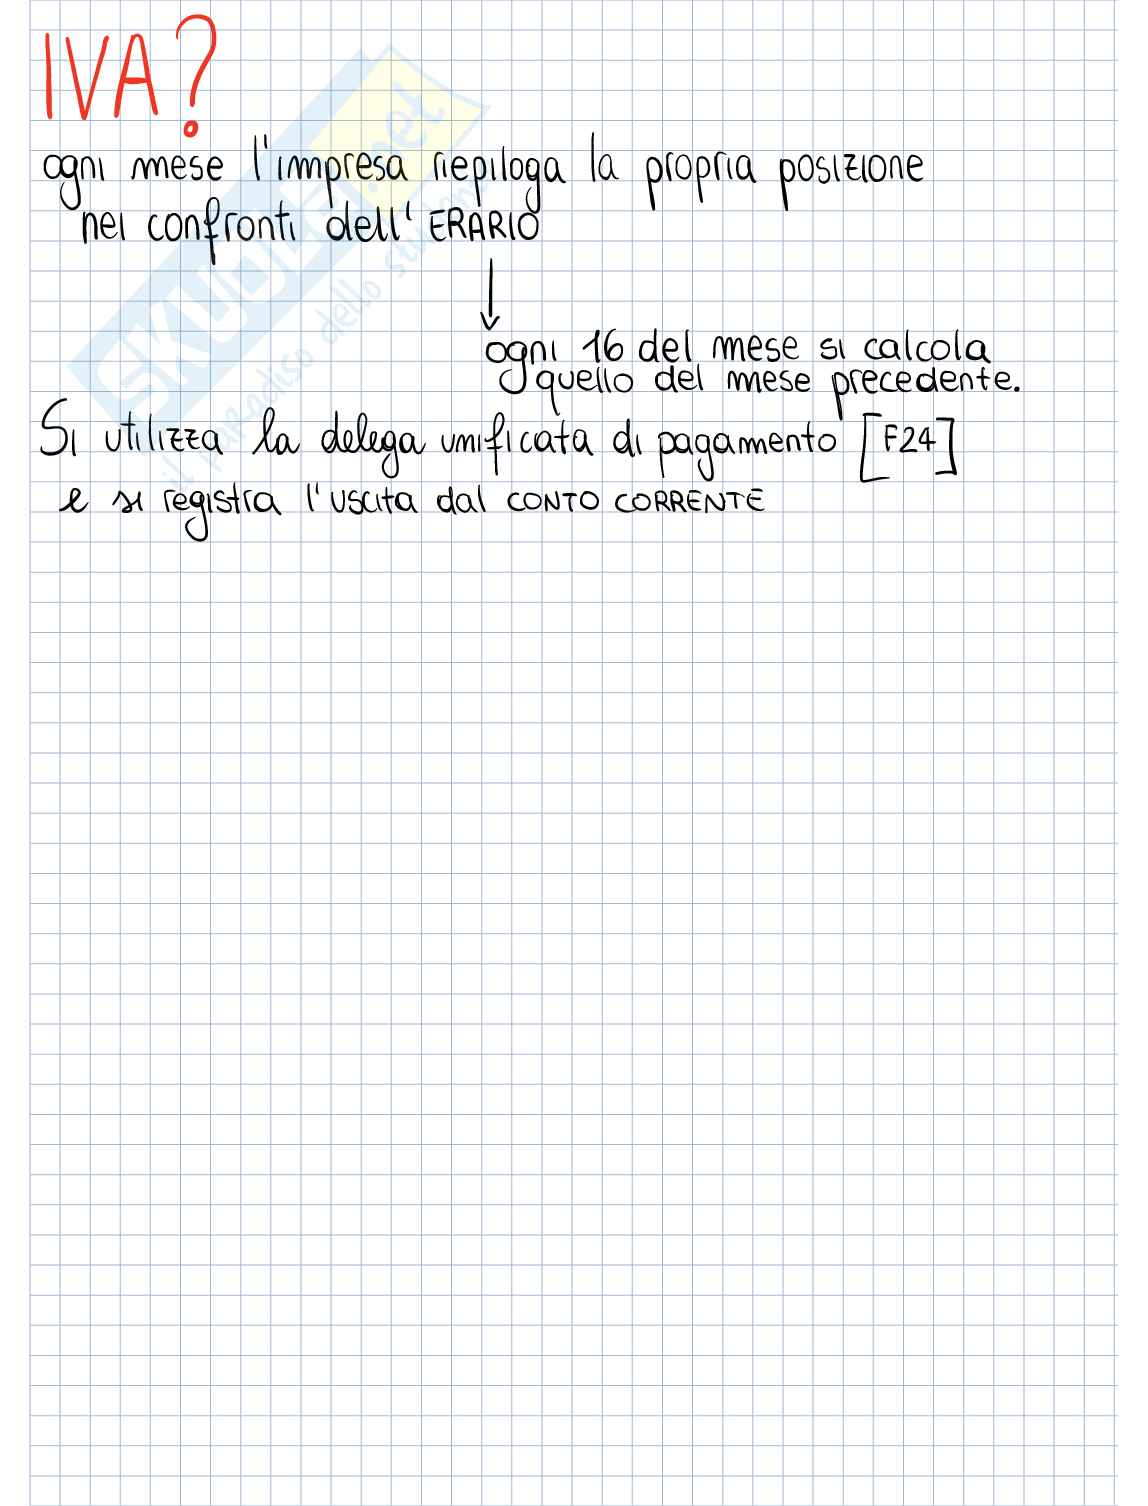 IVA?
ogni mese l'impresa riepiloga la propria posizione
nei confronti dell'ERARIO
ogni 16 del mese si calcola
quello del mese precedente.
Si utilizza la delega unificata di pagamento [F24]
e si registra l'uscita dal CONTO CORRENTE
SKUOLA.net
il paradiso dello studente